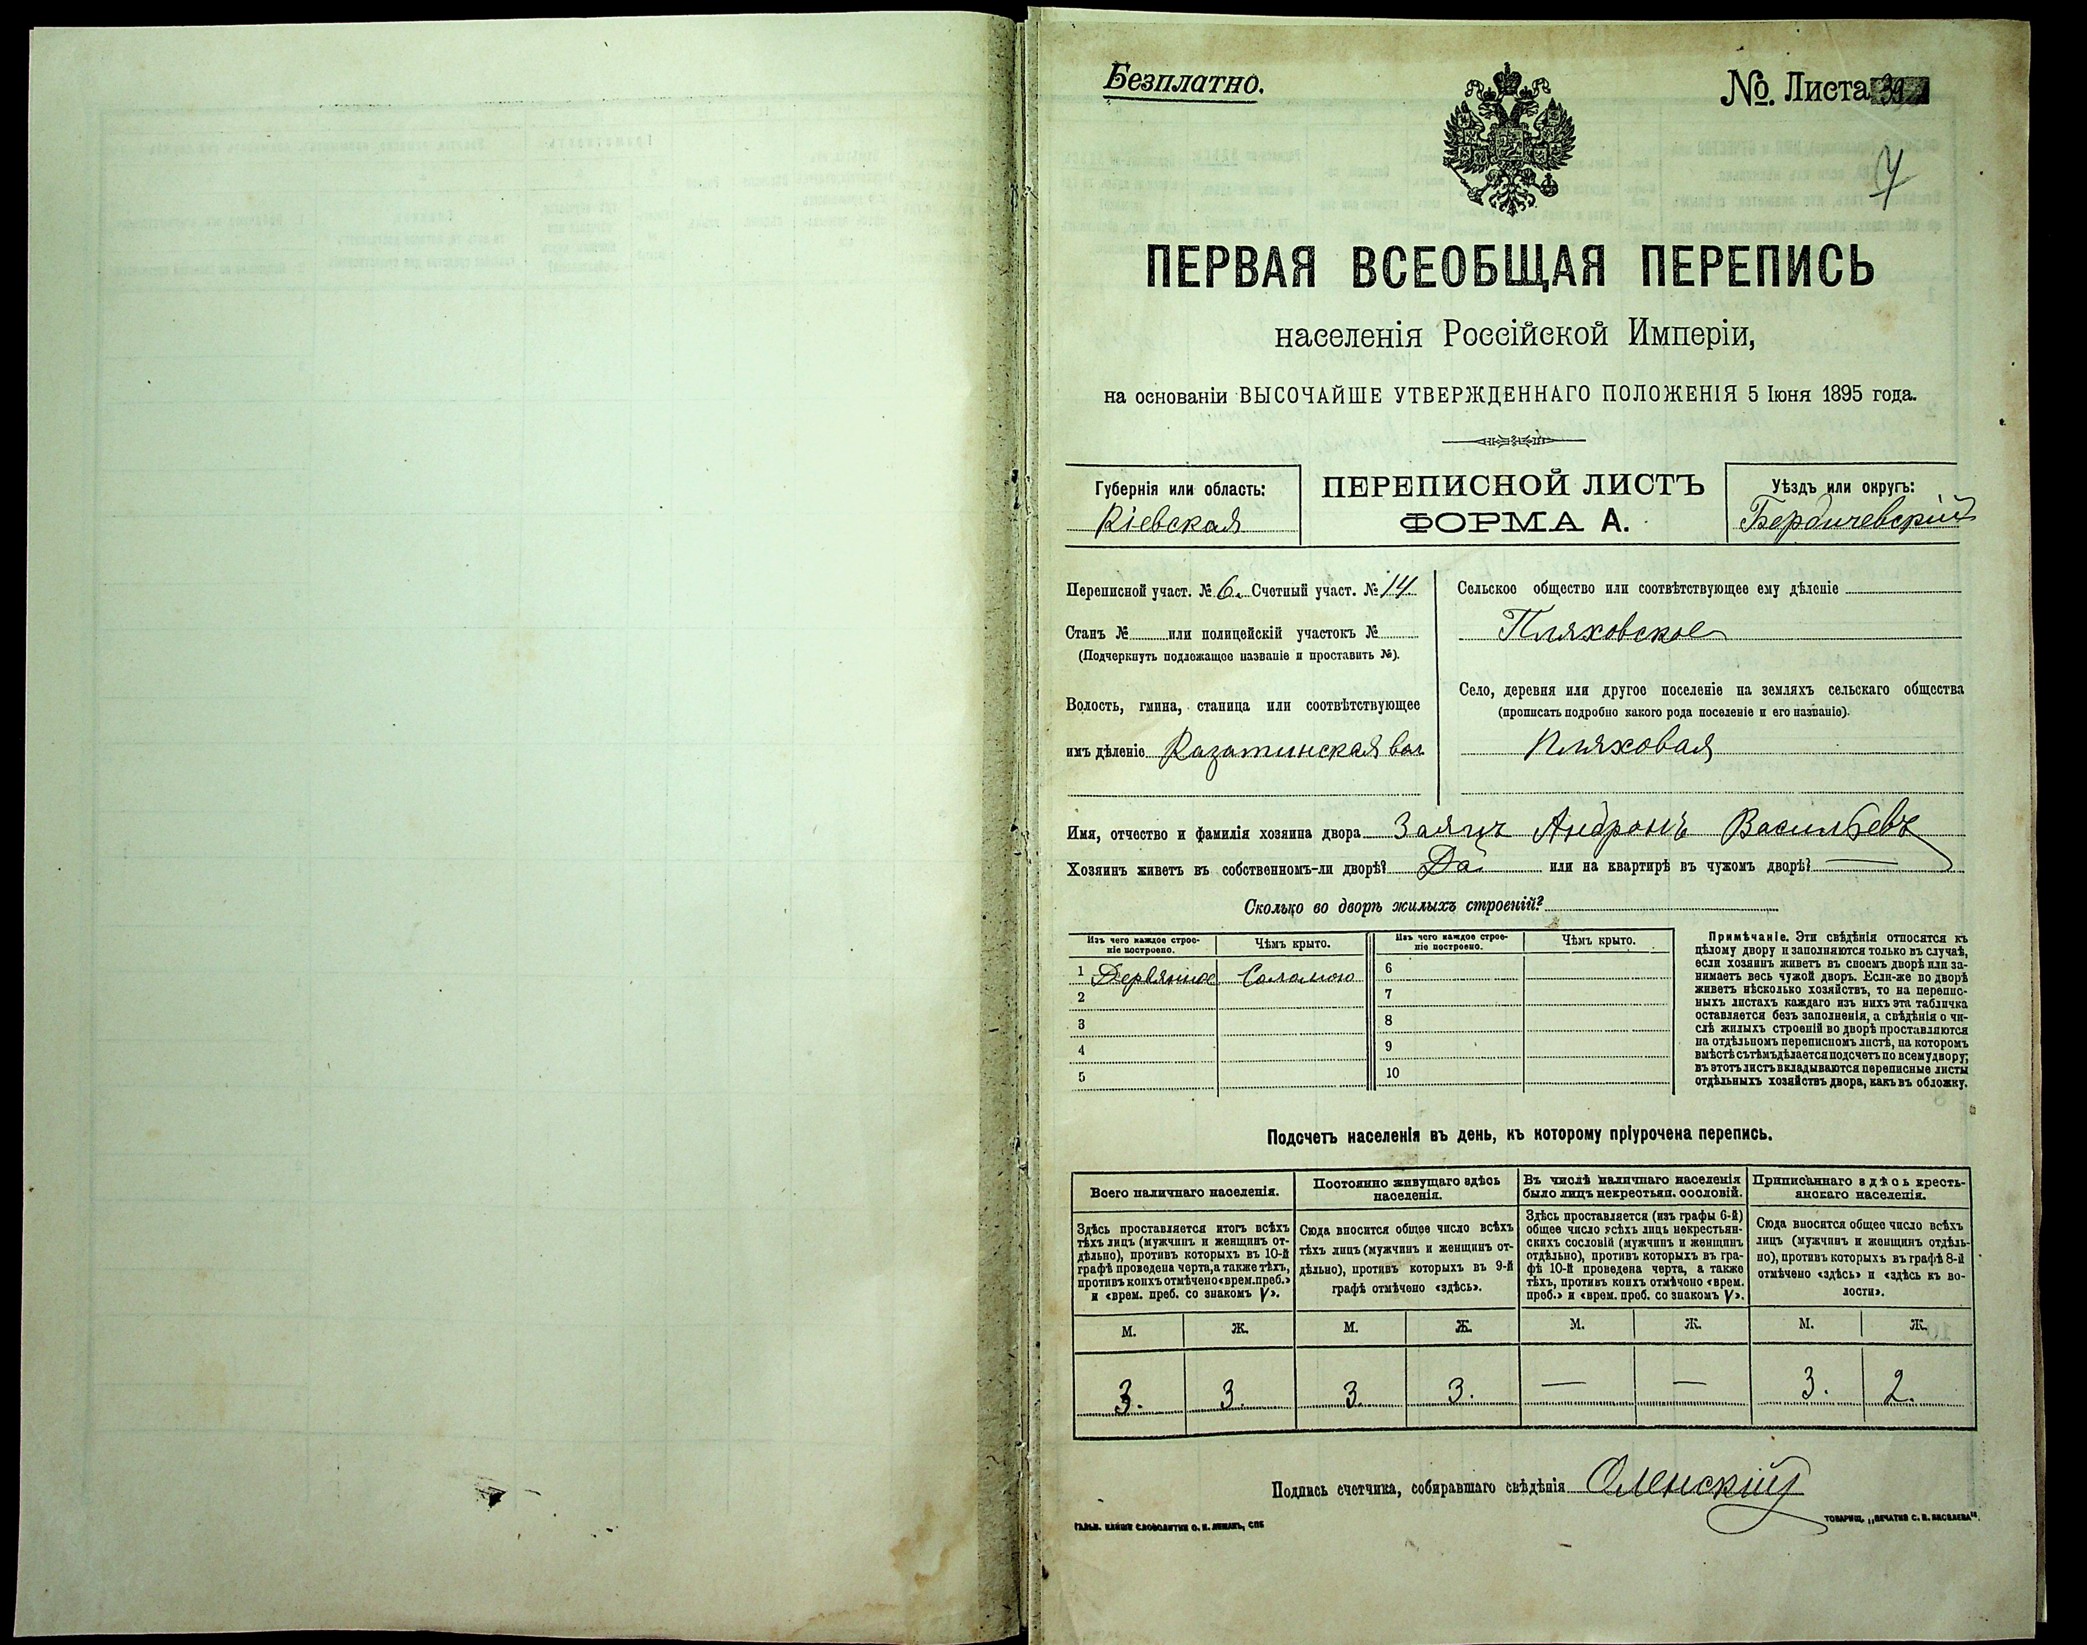 Безплатно.
№. Листа 39
ПЕРВАЯ ВСЕОБЩАЯ ПЕРЕПИСЬ
населенія Россійской Имперіи,
на основаніи ВЫСОЧАЙШЕ УТВЕРЖДЕННАГО ПОЛОЖЕНІЯ 5 Іюня 1895 года.
Губернія или область:
Кіевская
ПЕРЕПИСНОЙ ЛИСТЪ
ФОРМА А.
Уѣздъ или округъ:
Бердичевскій
Переписной участ. № 6. Счетный участ. № 14.
Станъ № или полицейскій участокъ №
(Подчеркнуть подлежащое названіе и проставить №).
Волость, гмина, станица или соотвѣтствующее
имъ дѣленіе Казатинская вол
Сельское общество или соотвѣтствующее ему дѣленіе
Пляховское
Село, деревня или другое поселеніе на земляхъ сельскаго общества
(прописать подробно какого рода поселеніе и его названіе).
Пляховая
Имя, отчество и фамилія хозяина двора Заяцъ Андронъ Васильевъ
Хозяинъ живетъ въ собственномъ-ли дворѣ? Да или на квартирѣ въ чужомъ дворѣ? —
Сколько во дворѣ жилыхъ строеній?
Изъ чего каждое строе-
ніе построено.
Чѣмъ крыто.
1 Деревянное Соломою
2
3
4
5
Изъ чего каждое строе-
ніе построено.
Чѣмъ крыто.
6
7
8
9
10
Примѣчаніе. Эти свѣдѣнія относятся къ
цѣлому двору и заполняются только въ случаѣ,
если хозяинъ живетъ въ своемъ дворѣ или за-
нимаетъ весь чужой дворъ. Если-же во дворѣ
живетъ нѣсколько хозяйствъ, то на перепис-
ныхъ листахъ каждаго изъ нихъ эта табличка
оставляется безъ заполненія, а свѣдѣнія о чи-
слѣ жилыхъ строеній во дворѣ проставляются
на отдѣльномъ переписномъ листѣ, на которомъ
вмѣстѣ съ тѣмъ дѣлается подсчетъ по всему двору;
въ этотъ листъ вкладываются переписные листы
отдѣльныхъ хозяйствъ двора, какъ въ обложку.
Подсчетъ населенія въ день, къ которому пріурочена перепись.
Всего наличнаго населенія.
Здѣсь проставляется итогъ всѣхъ
тѣхъ лицъ (мужчинъ и женщинъ от-
дѣльно), противъ которыхъ въ 10-й
графѣ проведена черта, а также тѣхъ,
противъ коихъ отмѣчено «врем. преб.»
и «врем. преб. со знакомъ V».
М. Ж.
3. 3.
Постоянно живущаго здѣсь
населенія.
Сюда вносится общее число всѣхъ
тѣхъ лицъ (мужчинъ и женщинъ от-
дѣльно), противъ которыхъ въ 9-й
графѣ отмѣчено «здѣсь».
М. Ж.
3. 3.
Въ числѣ наличнаго населенія
было лицъ некрестьян. сословій.
Здѣсь проставляется (изъ графы 6-й)
общее число всѣхъ лицъ некрестьян-
скихъ сословій (мужчинъ и женщинъ
отдѣльно), противъ которыхъ въ гра-
фѣ 10-й проведена черта, а также
тѣхъ, противъ коихъ отмѣчено «врем.
преб.» и «врем. преб. со знакомъ V».
М. Ж.
— —
Приписаннаго здѣсь кресть-
янскаго населенія.
Сюда вносится общее число всѣхъ
лицъ (мужчинъ и женщинъ отдѣль-
но), противъ которыхъ въ графѣ 8-й
отмѣчено «здѣсь» и «здѣсь къ во-
лости».
М. Ж.
3. 2.
Подпись счетчика, собиравшаго свѣдѣнія Оленскій